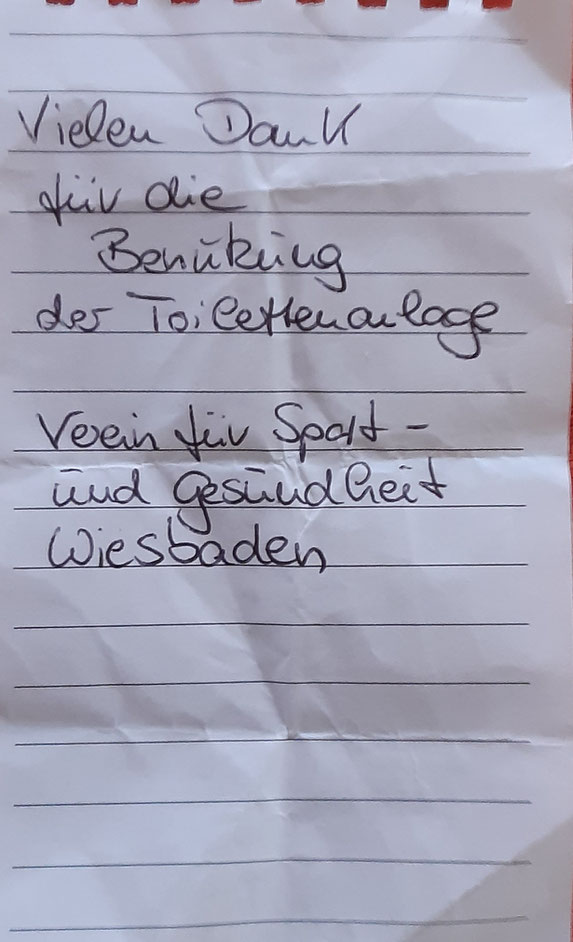 Vielen Dank
für die
Benützung
der Toilettenanlage
Verein für Sport-
und Gesundheit
Wiesbaden